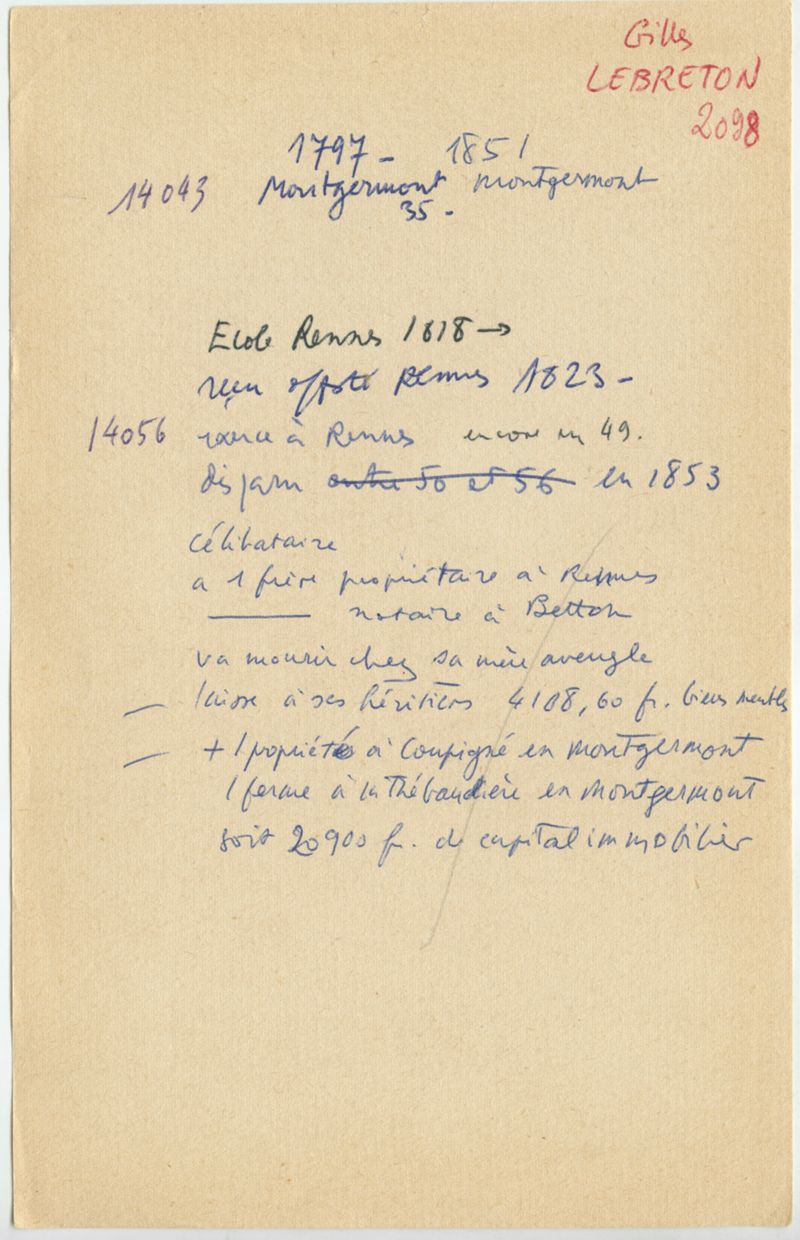 Gilles
LEBRETON
2098
1797 - 1851
14043 Montgermont Montgermont
35 -
Ecole Rennes 1818 →
reçu offsté Rennes 1823 -
14056 exerce à Rennes encore en 49.
disparu entre 50 et 56 en 1853
célibataire
a 1 frère propriétaire à Rennes
——— notaire à Betton
va mourir chez sa mère aveugle
— laisse à ses héritiers 4108,60 fr. biens meubles
— + 1 propriété à Coupigné en Montgermont
1 ferme à la Thébaudière en Montgermont
soit 20900 fr. de capital immobilier